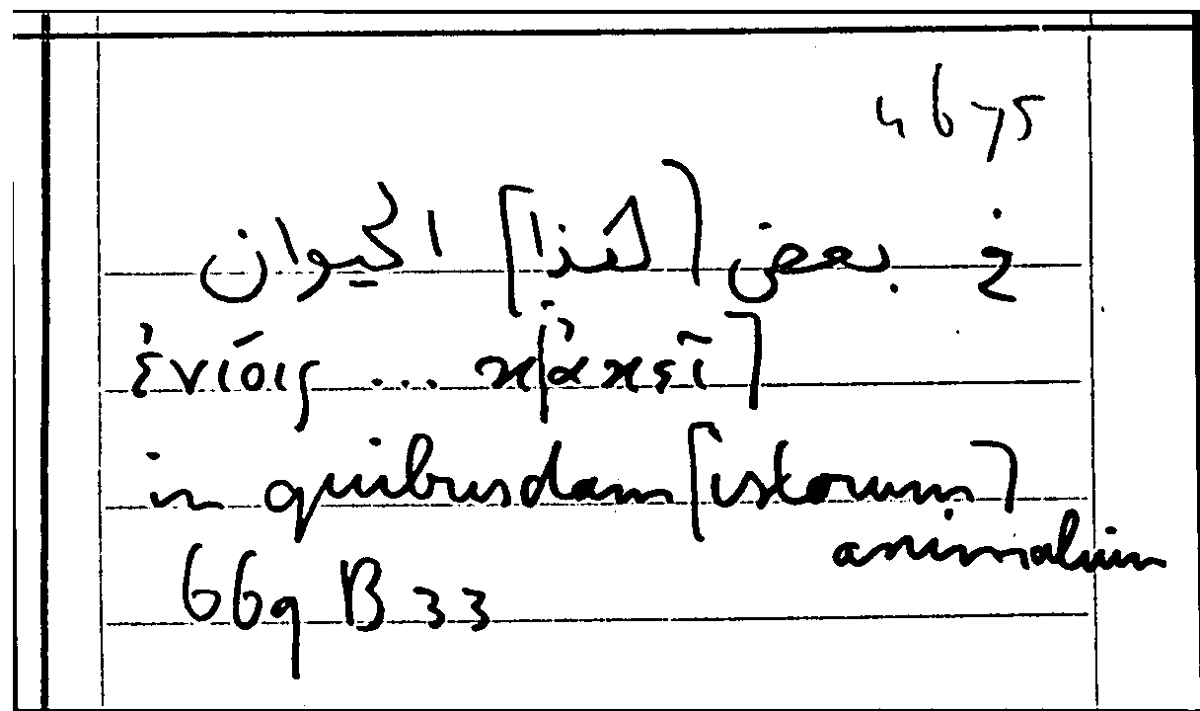 4675
في بعض [لهذا] الحيوان
ἐνίοις ... κ[ἀκεῖ]
in quibusdam [istorum]
animalium
669 B 33